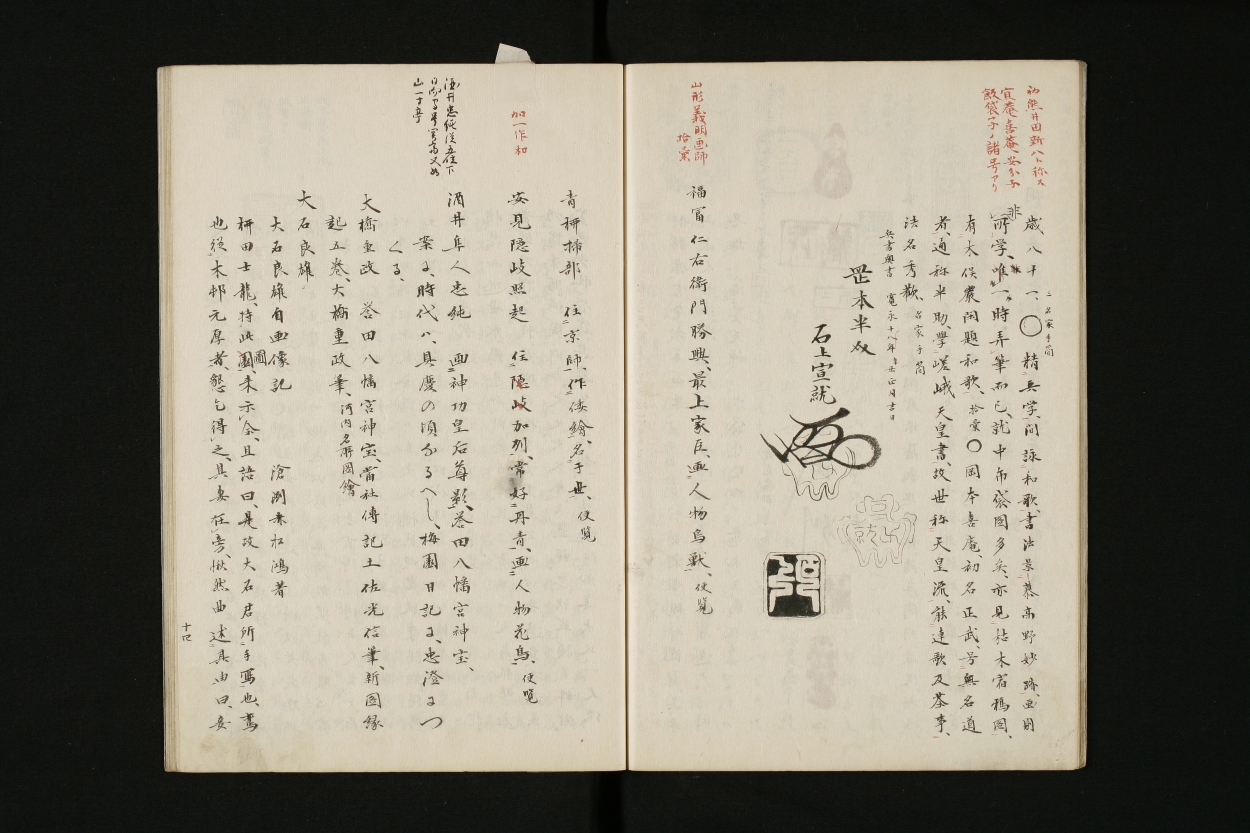 初熊井田新八ト称ス
宜庵、喜菴、安分子
殷袋子ノ諸号アリ
歳八十一、〇精兵学、間詠和歌、書法景慕高野妙跡、画則
非所学、唯一時弄筆而已、就中布袋図多矣、亦見枯木宿鴉図、
有木侯農閑題和歌、拾彙〇岡本喜庵、初名正武、号無名道
者、通称半助、学嵯峨天皇書、故世称天皇流、能達歌及茶事、
法名秀歓、名家手簡
兵書奥書 寛永十八年 正月吉日
岡本半双
石上宣就
山形義明画師
拾彙
福富仁右衛門勝興、最上家臣、画人物鳥獣、便覧
青柳掃部 住京師、作倭絵、名于世、便覧
加一作和
安見隠岐照起 住隠岐加列、常好丹青、画人物花鳥、便覧
酒井忠純従五位下
山一十亭
酒井隼人忠純 画神功皇后尊影、誉田八幡宮神宝、
案に、時代ハ、其度の頃なるへし、梅園日記に、忠澄につ
くる、
大橋重政 誉田八幡宮神宝当社傳記土佐光信筆、新図縁
起五巻、大橋重政筆、河内名所図絵
大石良雄
大石良雄自画像記 滄洲赤松鴻著
柳田士龍、持此図来示余、且語曰、是故大石君所手写也、鸞
也従木邨元厚者、懇乞得之、其妻在旁、愀然曲述其由曰、妾
十四